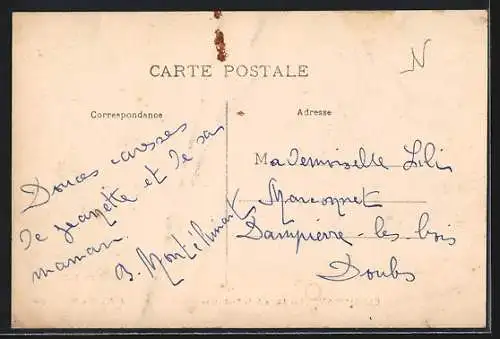 CARTE POSTALE
Correspondance
Adresse
N
Douces caresses
de Jeanette et de sa
maman.
B. Montélimart
Mademoiselle Lili
Marconnet
Dampierre-les bois
Doubs